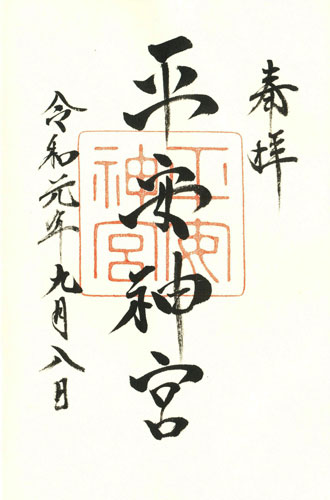 奉拝
平安神宮
平安神宮
令和元年九月八日